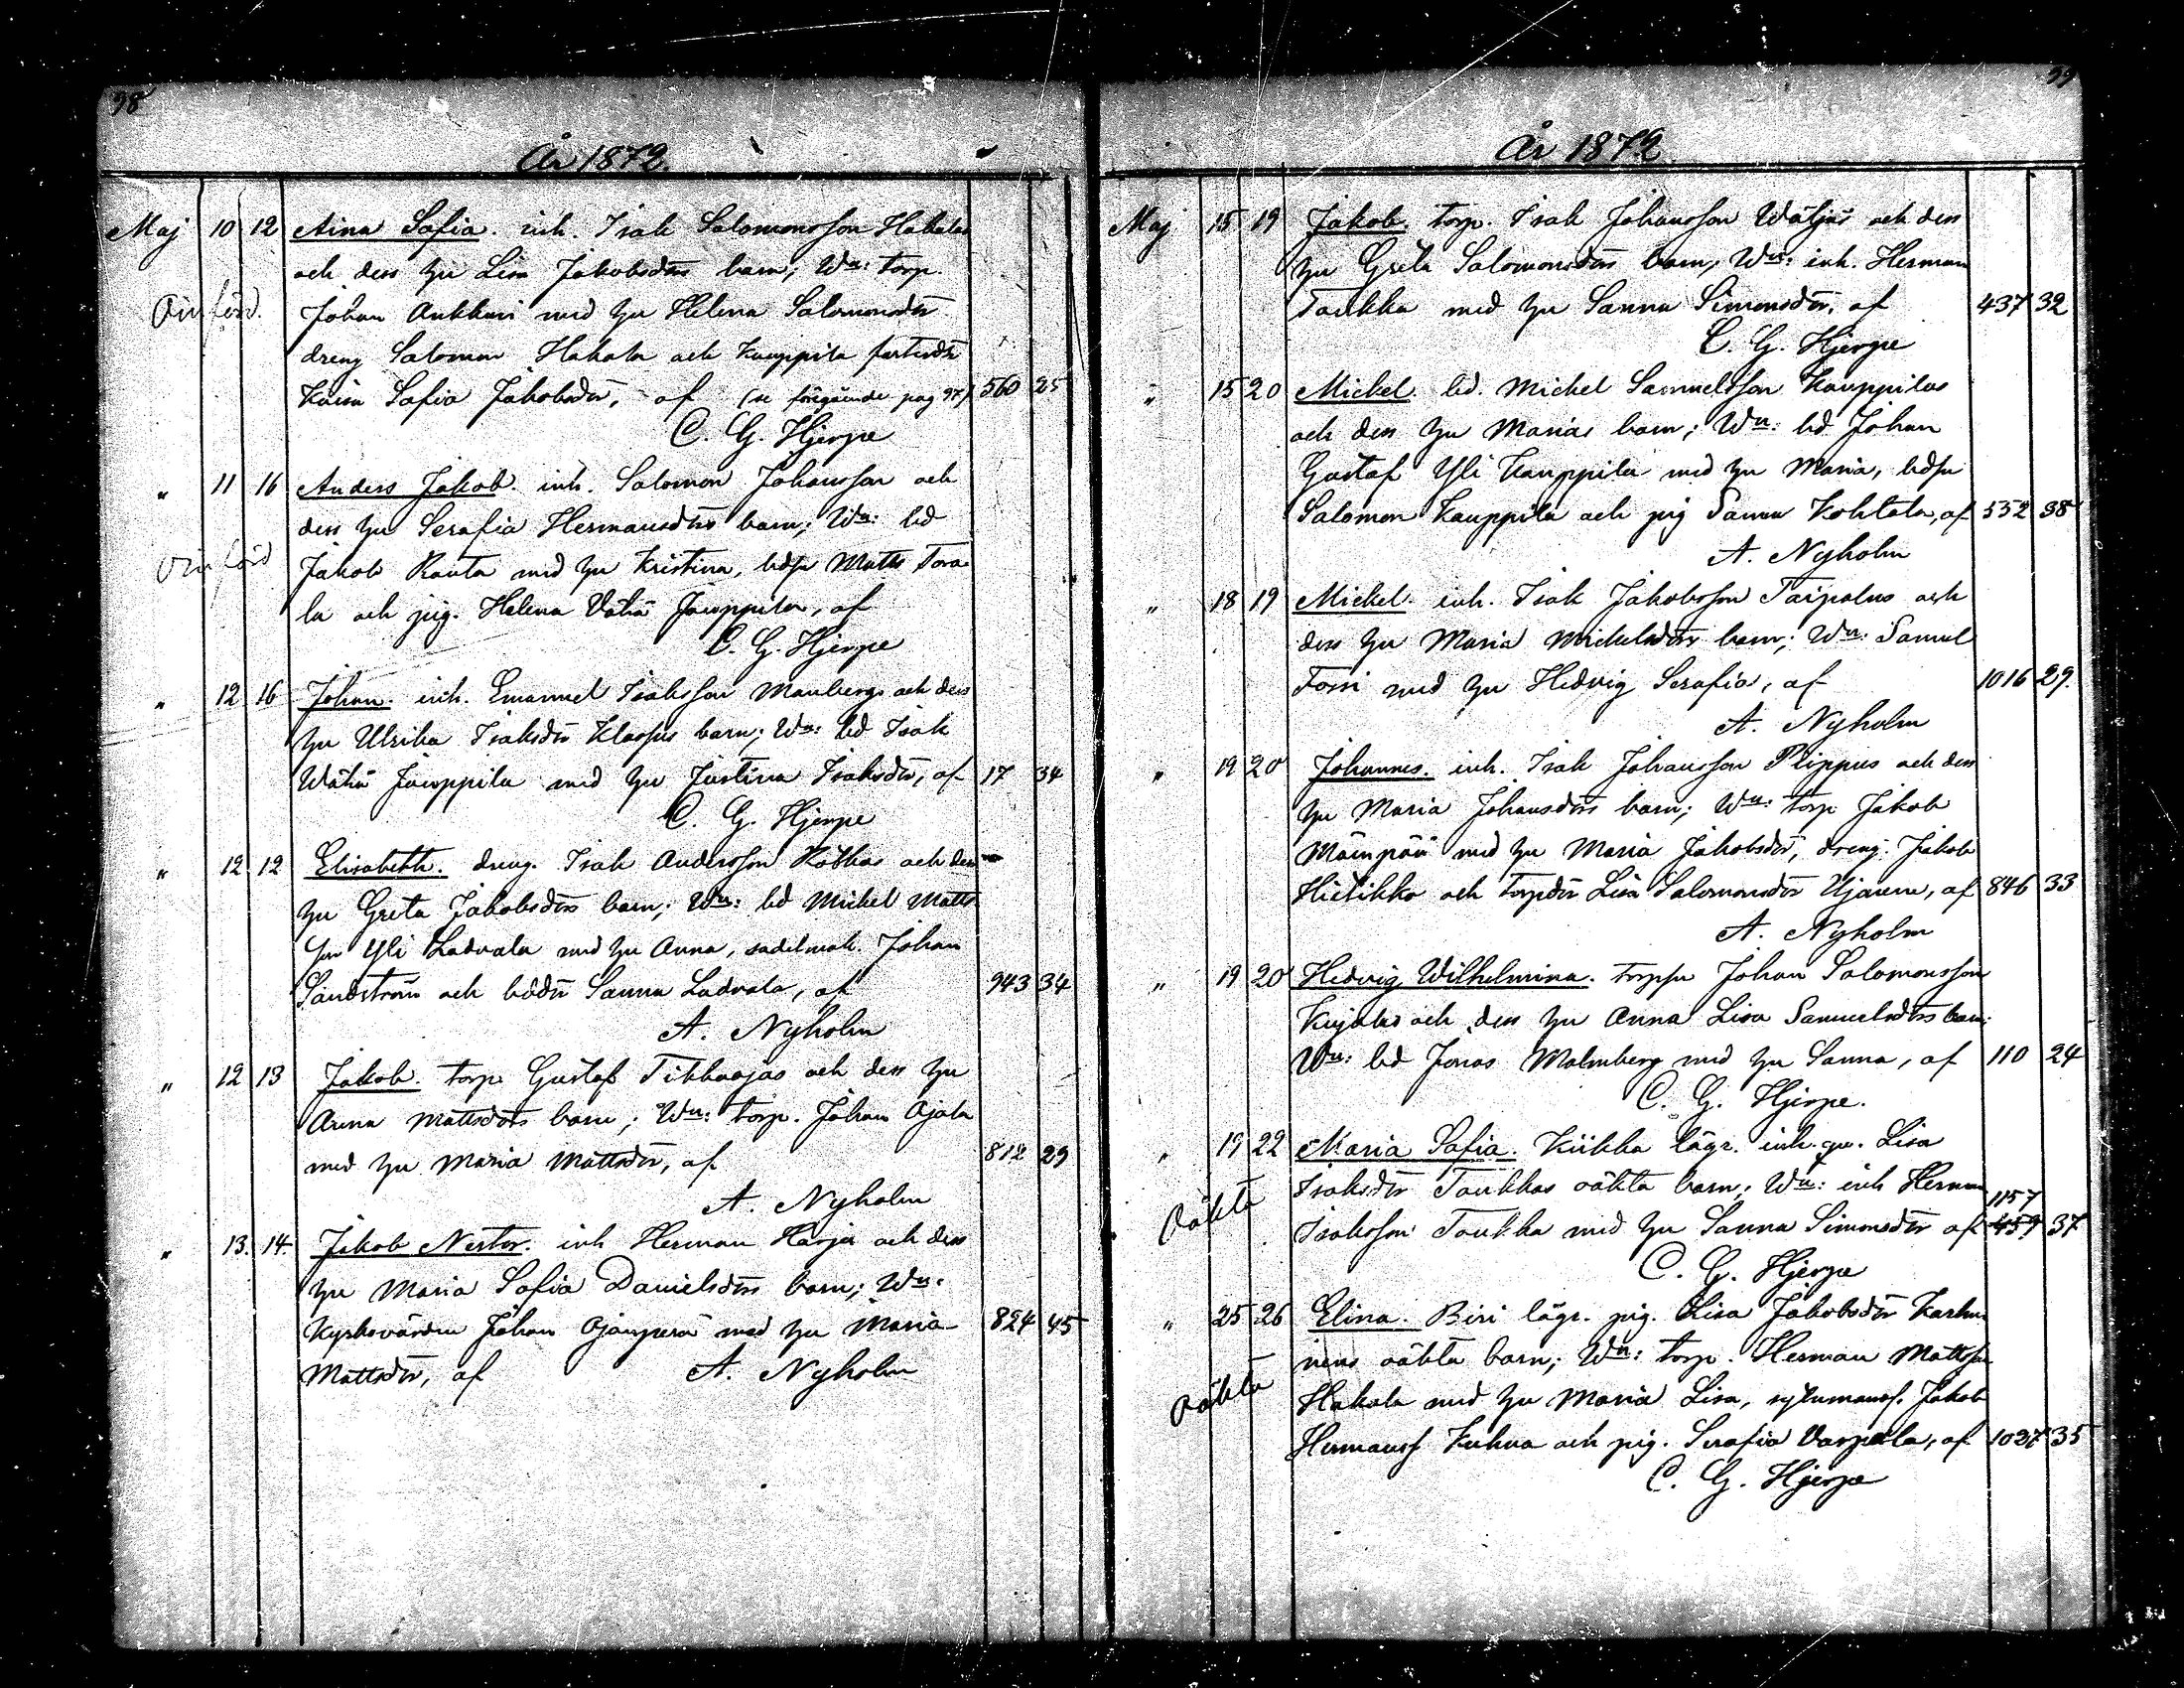 98
År 1872.
Maj 10 12 Aina Sofia. inh. Isak Salomonsson Hakalas
och dess hu Lisa Jakobsdrs barn; Wn: torp.
Johan Ankkuri med hu Helena Salomonsdr
dreng Salomon Hakala och Kauppila
Kaisa Sofia Jakobsdr, af (se föregående pag 97) 560 25
C. G. Hjerpe
" 11 16 Anders Jakob. inh. Salomon Johansson och
dess hu Serafia Hermansdrs barn; Wn: bd
Jakob Rauta med hu Kristina, bdsn Matts Tora-
la och pig. Helena Vähä Jaeoppila, af
C. G. Hjerpe
" 12 16 Johan. inh. Emanuel Isaksson Manbergs och dess
hu Ulrika Isaksdr Klassus barn; Wn: bd Isak
Wähä Jauoppila med hu Justina Isaksdr, af 17 34
C. G. Hjerpe
" 12 12 Elisabeth. dreng. Isak Andersson Kotkas och dess
hu Greta Jakobsdrs barn; Wn: bd Mickel Matts-
son Yli Ladvala med hu Anna, sadelmak. Johan
Sandström och bddr Sanna Ladvala, af 943 34
A. Nyholm
" 12 13 Jakob. torp. Gustaf Tikkaojas och dess hu
Anna Mattsdrs barn; Wn: torp. Johan Ojala
med hu Maria Mattsdr, af 812 29
A. Nyholm
" 13. 14. Jakob Nestor. inh Herman Harju och dess
hu Maria Sofia Danielsdrs barn; Wn:
Kyrkovärden Johan Ojanperä med hu Maria 824 45
Mattsdr, af A. Nyholm
99
År 1872
Maj 15 19 Jakob. torp. Isak Johansson Wätjus och dess
hu Greta Salomonsdrs barn; Wn: inh. Herman
Taukka med hu Sanna Simonsdr, af 437 32
C. G. Hjerpe
" 15 20 Mickel. bd. Mickel Samuelsson Kauppilas
och dess hu Marias barn; Wn: bd Johan
Gustaf Yli Kauppila med hu Maria, bdsn
Salomon Kauppila och pig Sanna Kohtala, af 532 38
A. Nyholm
" 18 19 Mickel. inh. Isak Jakobsson Taipalus och
dess hu Maria Mickelsdrs barn; Wn: Samuel
Forsi med hu Hedvig Serafia, af 1016 29.
A. Nyholm
" 19 20 Johannes. inh. Isak Johansson Plippus och dess
hu Maria Johansdrs barn; Wn: torp Jakob
Mäenpää med hu Maria Jakobsdr, dreng. Jakob
Hietikko och torpdr Lisa Salomonsdr Ujainen, af 846 33
A. Nyholm
" 19 20 Hedvig Wilhelmina. torpsn Johan Salomonsson
Kujalas och dess hu Anna Lisa Samuelsdrs barn;
Wn: bd Jonas Malmberg med hu Sanna, af 110 24
C. G. Hjerpe.
" 19 22 Maria Sofia. Kiikka lägr. inh. qv. Lisa
oäkta Isaksdr Taukkas oäkta barn; Wn: inh Herman 1157
Isaksson Taukka med hu Sanna Simonsdr af 459 37
C. G. Hjerpe
" 25 26 Elina. Biri lägr. pig. Lisa Jakobsdr Karhu-
nens oäkta barn; Wn: torp. Herman Mattsson
oäkta Hakala med hu Maria Lisa, sytnmanss. Jakob
Hermanss Kuhna och pig. Serafia Varpula, af 1027 35
C. G. Hjerpe